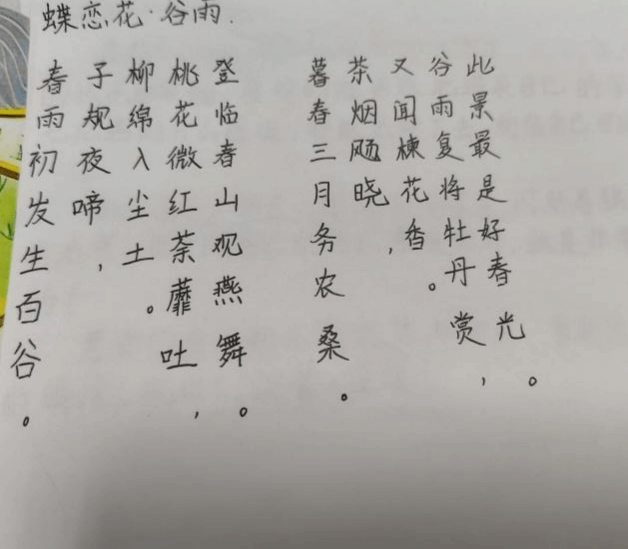 蝶恋花·谷雨.
春雨初发生百谷。
子规夜啼,
柳绵入尘土。
桃花微红荼蘼吐,
登临春山观燕舞。
暮春三月务农桑。
茶烟飏晓,
又闻楝花香。
谷雨复将牡丹赏,
此景最是好春光。